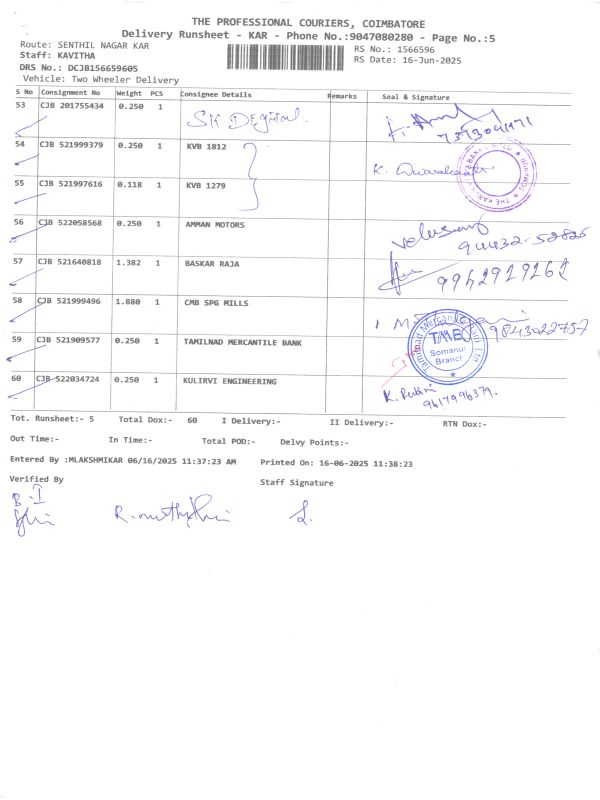 THE PROFESSIONAL COURIERS, COIMBATORE
Delivery Runsheet - KAR - Phone No.:9047080280 - Page No.:5
Route: SENTHIL NAGAR KAR
RS No.: 1566596
Staff: KAVITHA
RS Date: 16-Jun-2025
DRS No.: DCJB156659605
Vehicle: Two Wheeler Delivery
S No Consignment No Weight PCS Consignee Details Remarks Seal & Signature
53 CJB 201755434 0.250 1 SK Degital
54 CJB 521999379 0.250 1 KVB 1812
55 CJB 521997616 0.118 1 KVB 1279
56 CJB 522058568 0.250 1 AMMAN MOTORS
94432-52826
57 CJB 521640818 1.382 1 BASKAR RAJA
9942929262
58 CJB 521999496 1.880 1 CMB SPG MILLS
9843022757
59 CJB 521909577 0.250 1 TAMILNAD MERCANTILE BANK
TMB
Somanur
Branch
60 CJB 522034724 0.250 1 KULIRVI ENGINEERING
9617996379.
Tot. Runsheet:- 5 Total Dox:- 60 I Delivery:- II Delivery:- RTN Dox:-
Out Time:- In Time:- Total POD:- Delvy Points:-
Entered By :MLAKSHMIKAR 06/16/2025 11:37:23 AM Printed On: 16-06-2025 11:38:23
Verified By
Staff Signature
B.I